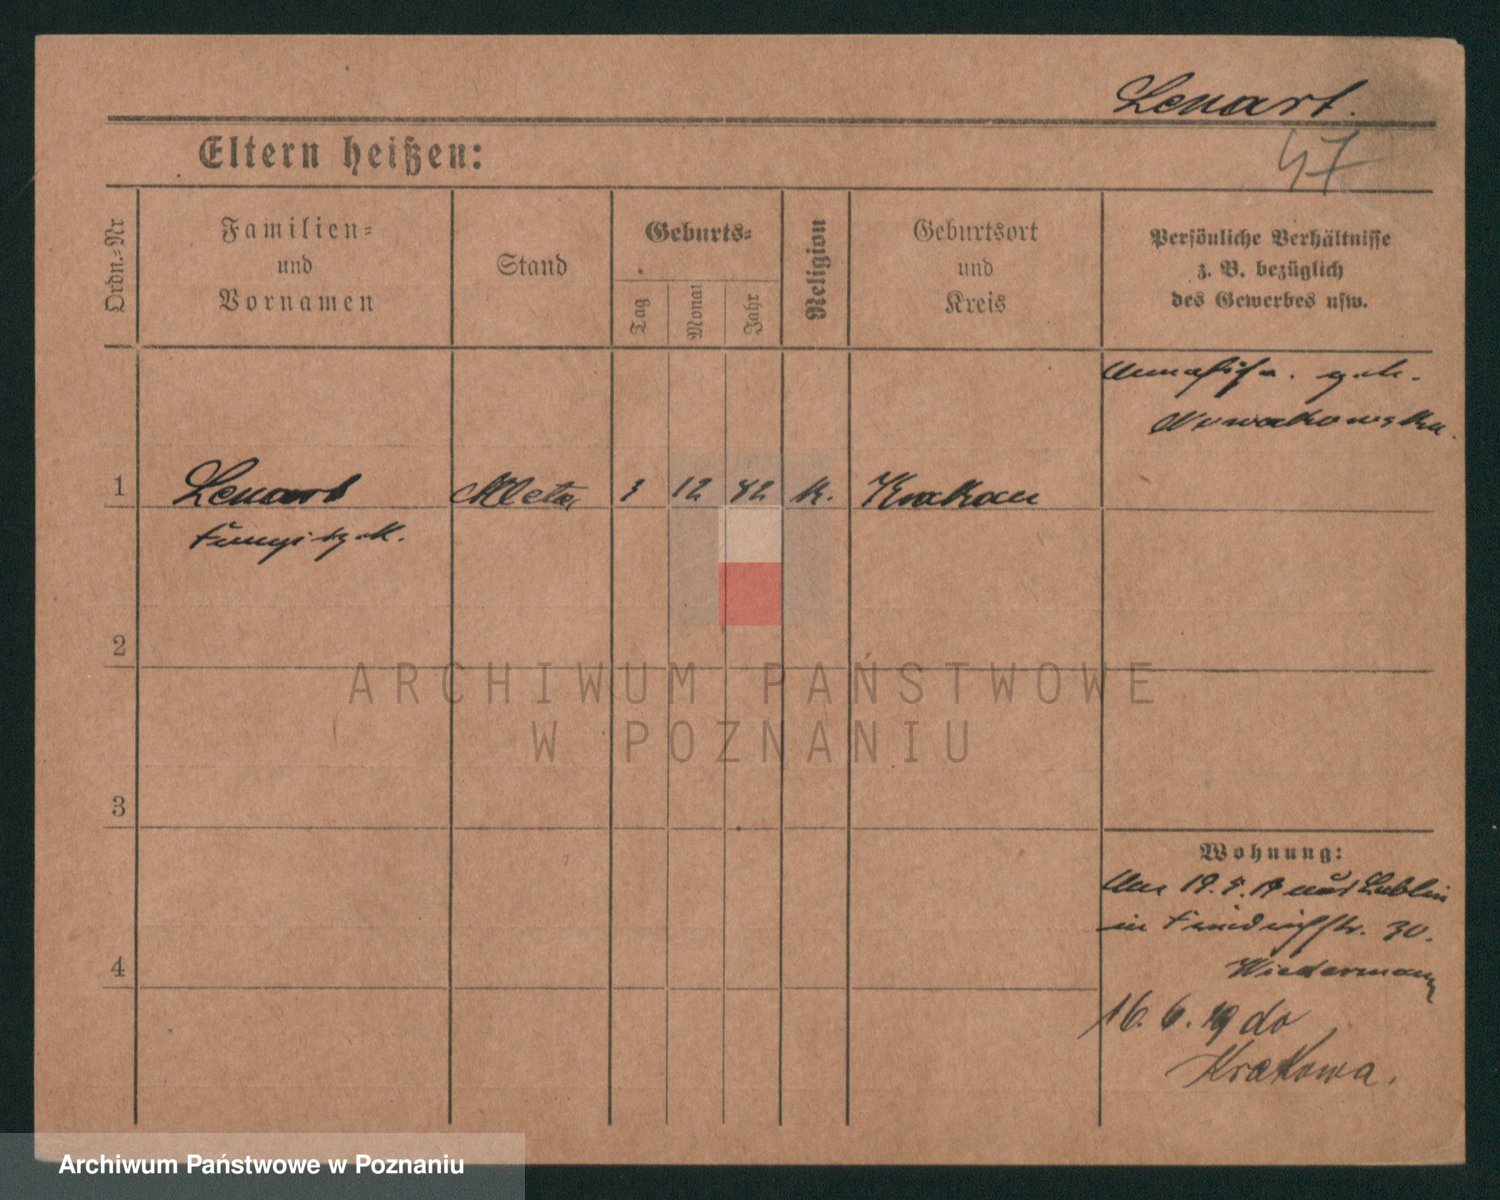 Lenart.
47
Eltern heißen:
Ordn.-Nr
Familien-
und
Vornamen
Stand
Geburts-
Tag
Monat
Jahr
Religion
Geburtsort
und
Kreis
Persönliche Verhältnisse
z. B. bezüglich
des Gewerbes usw.
geb.
Nowakowska.
1
Lenart
3 12 42 k. Krakau
2
3
4
Wohnung:
19. 4. 19 aus Lublin
in Friedrichstr. 30.
Wiedermann
16. 6. 19 do
Krakowa.
ARCHIWUM PAŃSTWOWE
W POZNANIU
Archiwum Państwowe w Poznaniu